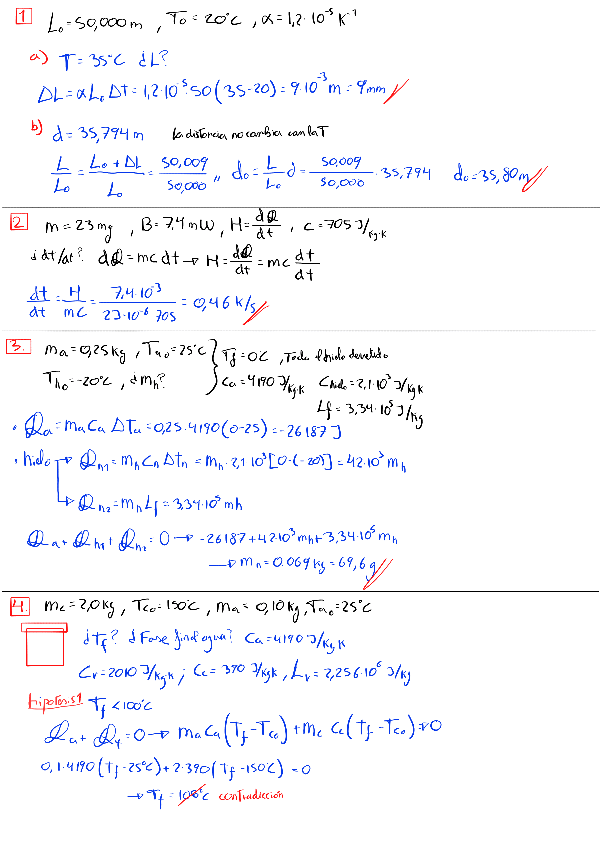 1 L₀ = 50,000 m , T₀ = 20°C , α = 1,2·10⁻⁵ K⁻¹
a) T = 35°C ¿L?
ΔL = αL₀Δt = 1,2·10⁻⁵·50(35-20) = 9·10⁻³ m = 9mm
b) d = 35,794 m La distancia no cambia con la T
L/L₀ = (L₀ + ΔL)/L₀ = 50,009/50,000 ,, d₀ = L/L₀ d = 50,009/50,000 · 35,794 d₀ = 35,80 m
2 m = 23 mg , B = 7,4 mW , H = dQ/dt , c = 705 J/kg·K
¿dt/dt? dQ = mc dt → H = dQ/dt = mc dt/dt
dt/dt = H/mc = 7,4·10⁻³/23·10⁻⁶ 705 = 0,46 K/s
3. ma = 0,25 kg , Ta₀ = 25°C } Tf = 0C , Todo el hielo derretido
Th₀ = -20°C , ¿mh? Ca = 4190 J/kg·K Chielo = 2,1·10³ J/kg K
Lf = 3,34·10⁵ J/kg
· Qa = ma Ca ΔTa = 0,25·4190(0-25) = -26187 J
· hielo → Qh1 = mh Ch ΔTh = mh·2,1·10³[0-(-20)] = 42·10³ mh
→ Qh2 = mh Lf = 3,34·10⁵ mh
Qa + Qh1 + Qh2 = 0 → -26187 + 42·10³ mh + 3,34·10⁵ mh
→ mh = 0.069 kg = 69,6 g
4. mc = 2,0 kg , Tc₀ = 150°C , ma = 0,10 kg , Ta₀ = 25°C
¿Tf? ¿Fase final agua? Ca = 4190 J/kg K
Cv = 2010 J/kg·K ; Cc = 390 J/kgK , Lv = 2,256·10⁶ J/kg
hipotesis 1 Tf < 100°C
Qa + Qy = 0 → ma Ca (Tf - Tc₀) + mc Cc (Tf - Tc₀) = 0
0,1·4190(Tf - 25°C) + 2·390(Tf - 150°C) = 0
→ Tf = 106°C contradicción